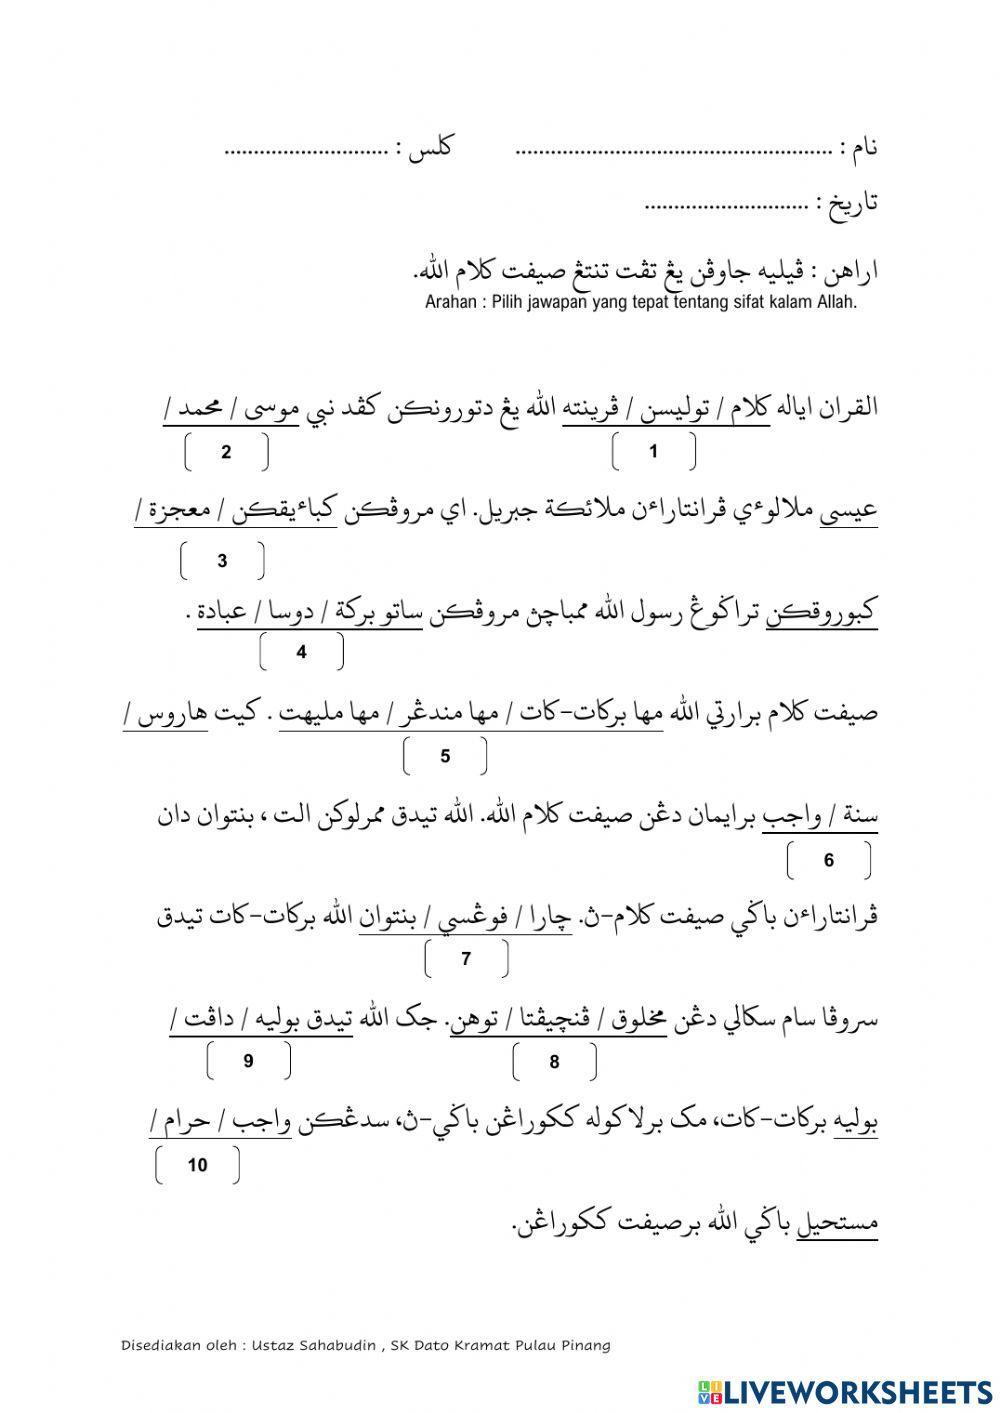 نام : ...................................................... كلس : ............................
تاريخ : ............................
اراهن : ڤيليه جاوڤن يڠ تڤت تنتڠ صيفت كلام الله.
Arahan : Pilih jawapan yang tepat tentang sifat kalam Allah.
القران اياله كلام / توليسن / ڤرينته الله يڠ دتورونكن كڤد نبي موسى / محمد /
1 2
عيسى ملالوءي ڤرانتاراءن ملائكة جبريل. اي مروڤكن كباءيقكن / معجزة /
3
كبوروقكن تراݢوڠ رسول الله ممباچڽ مروڤكن ساتو بركة / دوسا / عبادة .
4
صيفت كلام برارتي الله مها بركات-كات / مها مندڠر / مها مليهت . كيت هاروس /
5
سنة / واجب برايمان دڠن صيفت كلام الله. الله تيدق ممرلوكن الت ، بنتوان دان
6
ڤرانتاراءن باݢي صيفت كلام-ڽ. چارا / فوڠسي / بنتوان الله بركات-كات تيدق
7
سروڤا سام سكالي دڠن مخلوق / ڤنچيڤتا / توهن. جک الله تيدق بوليه / داڤت /
8 9
بوليه بركات-كات، مک برلاكوله ككوراڠن باݢي-ڽ، سدڠكن واجب / حرام /
10
مستحيل باݢي الله برصيفت ككوراڠن.
Disediakan oleh : Ustaz Sahabudin , SK Dato Kramat Pulau Pinang
LIVE LIVEWORKSHEETS